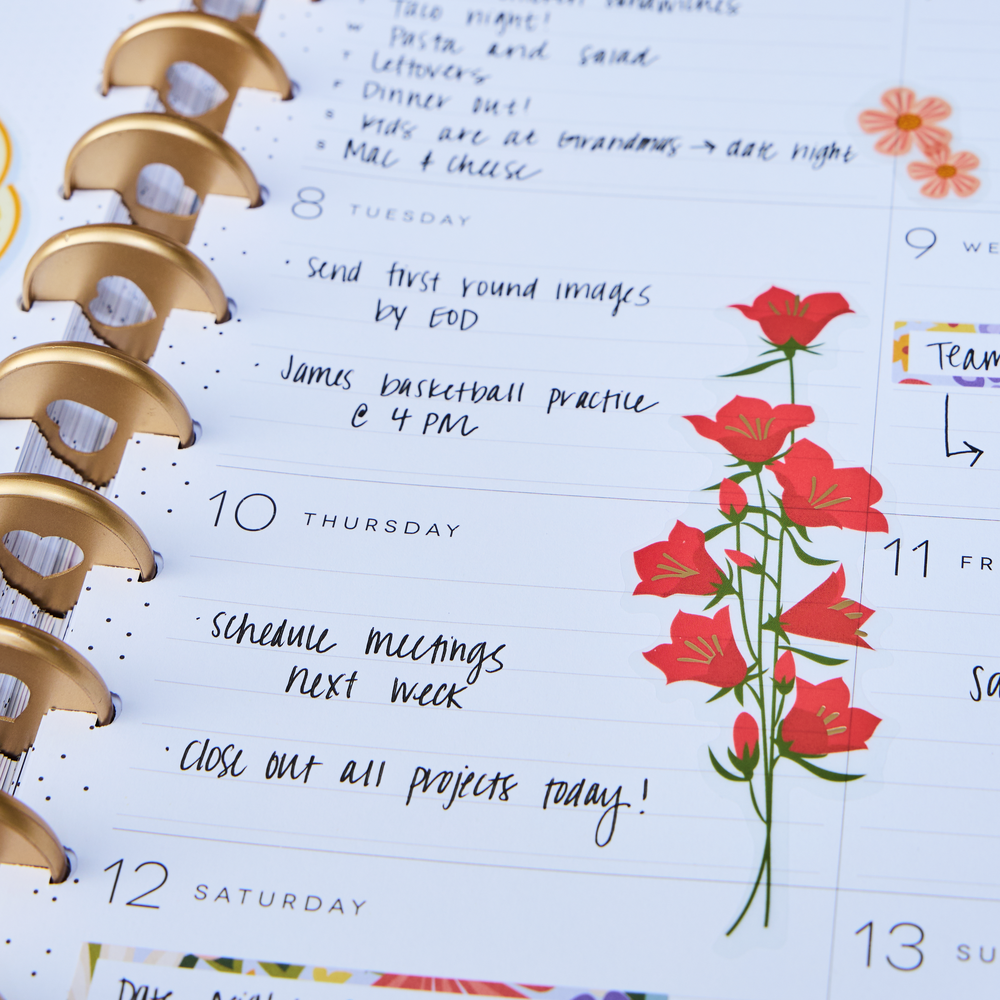 sandwiches
Taco night!
Pasta and salad
Leftovers
Dinner out!
Kids are at Grandmas → date night
Mac & Cheese
8 TUESDAY
· send first round images
by EOD
· James basketball practice
@ 4 PM
9 WE
Team
10 THURSDAY
· schedule meetings
next week
· Close out all projects today!
11 FR
Sa
12 SATURDAY
Date night
13 SU